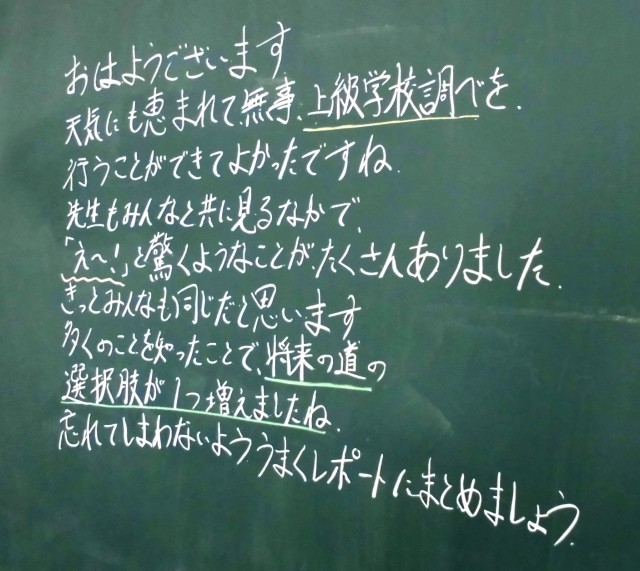 おはようございます
天気にも恵まれて、無事、上級学校調べを、
行うことができてよかったですね.
先生もみんなと共に見るなかで、
「え〜!」と驚くようなことが、たくさんありました.
きっとみんなも同じだと思います
多くのことを知ったことで、将来の道の
選択肢が1つ増えましたね.
忘れてしまわないよう、うまくレポートにまとめましょう.